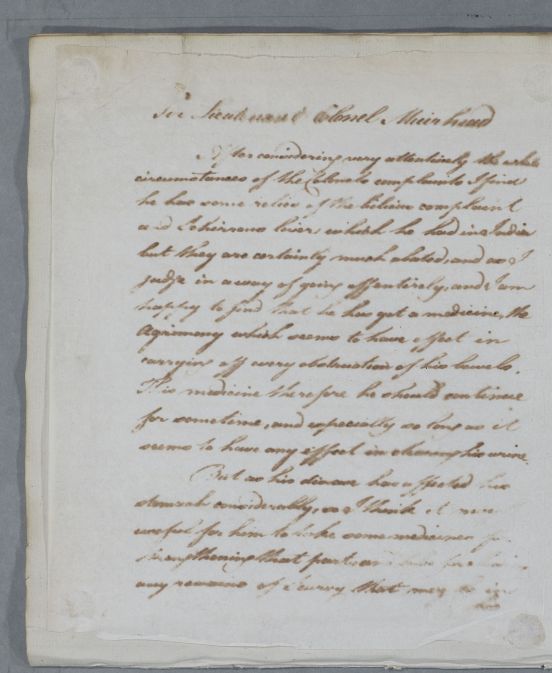 For Lieutenant Colonel Muirhead
After considering very attentively the whole
circumstances of the Colonels complaints I find
he has some of the bilious complaint
and Schirrous liver which he had in India
but they are certainly much abated, and as I
judge in a way of going off entirely, and I am
happy to find that he has got a medicine, the
Agrimony which seems to have effect in
carrying off every obstruction of his bowels.
This medicine therefore he should continue
for sometime, and especially so long as it
seems to have any effect in clearing his urine.
But as his disease has affected his
stomach considerably, so I think it
useful for him to take some medicines for
strengthening that part, and
any remains of Scurvy that may be in